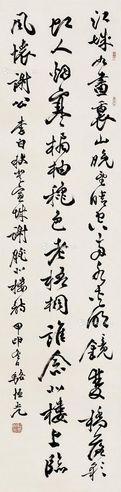 江城如畫裏山晚望晴空兩水夾明鏡雙橋落彩
虹人煙寒橘柚穐色老梧桐誰念北樓上臨
風懷謝公 李白秋登宣城謝朓北樓詩 甲申春駱恒光